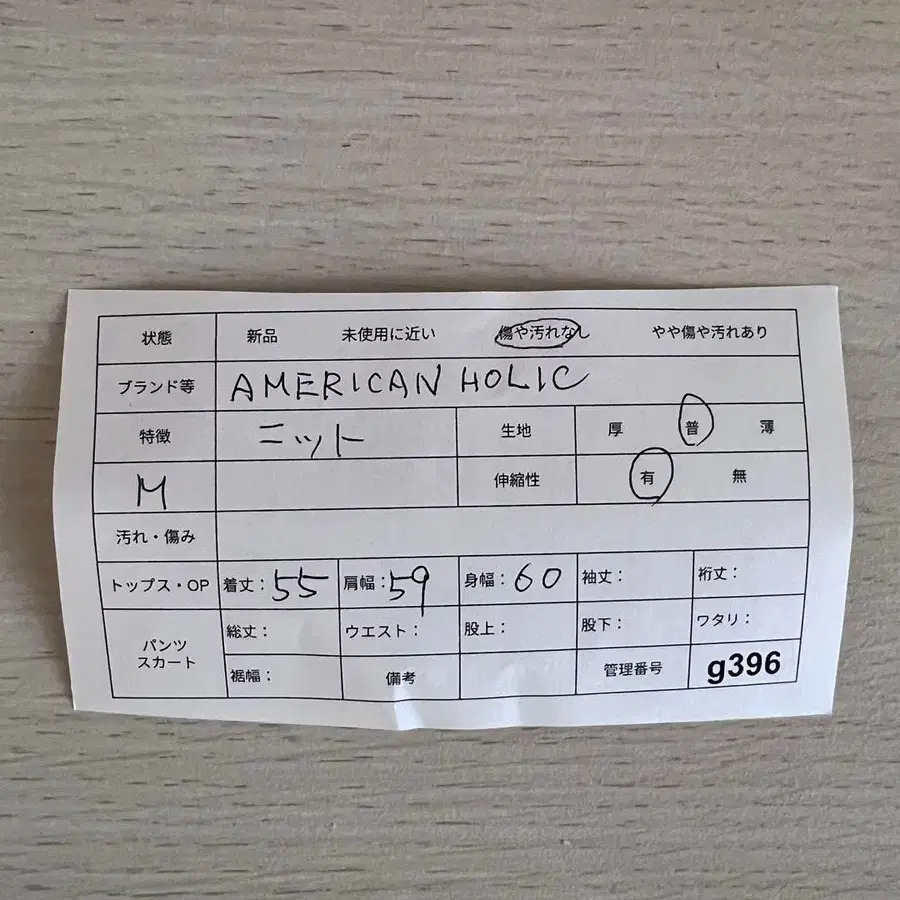 状態 新品 未使用に近い 傷や汚れなし やや傷や汚れあり
ブランド等 AMERICAN HOLIC
特徴 ニット 生地 厚 普 薄
M 伸縮性 有 無
汚れ・傷み
トップス・OP 着丈：55 肩幅：59 身幅：60 袖丈： 裄丈：
パンツ スカート 総丈： ウエスト： 股上： 股下： ワタリ：
裾幅： 備考 管理番号 g396